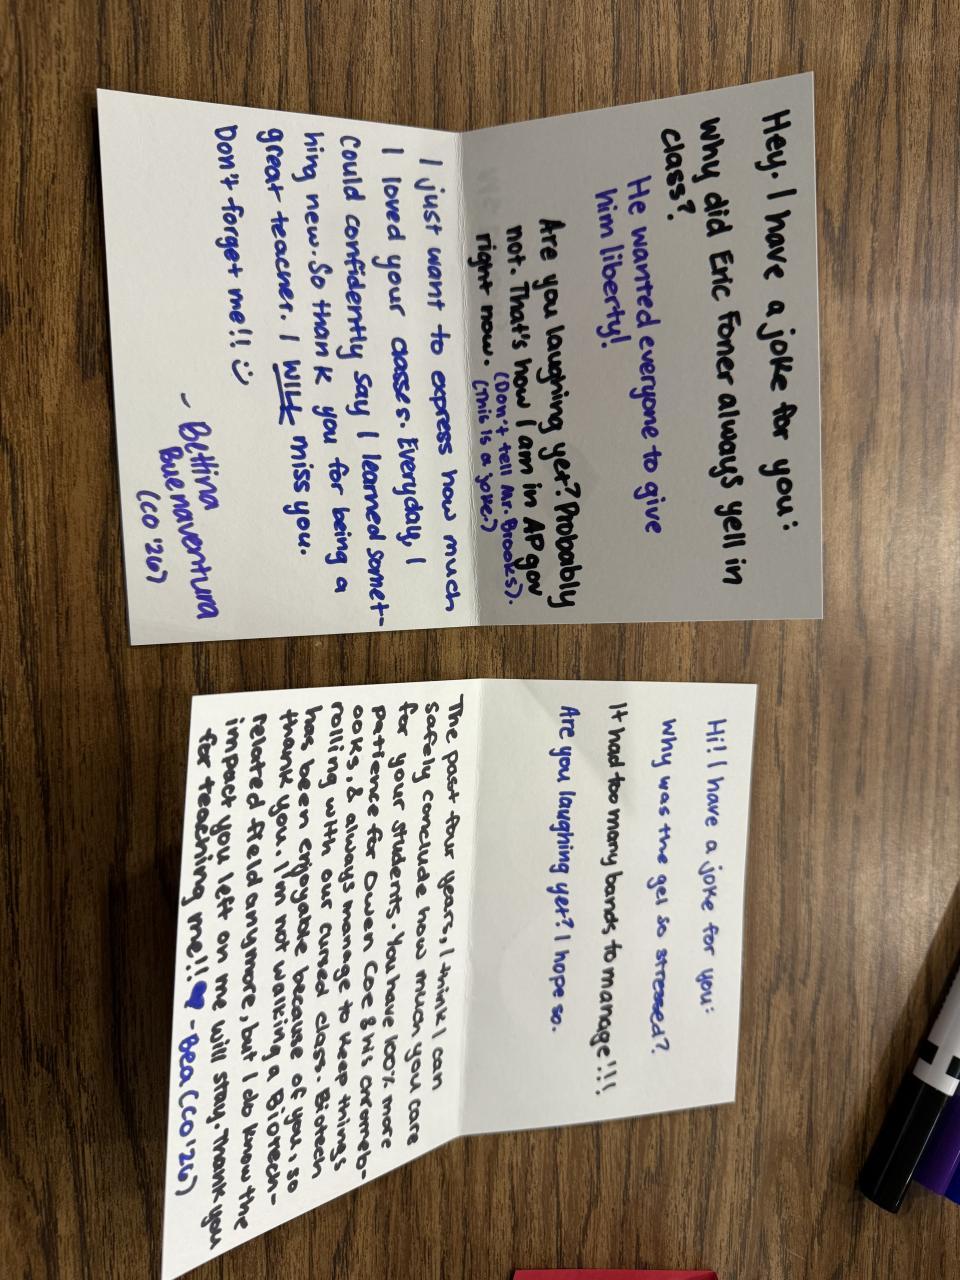 Hey. I have a joke for you:
Why did Eric Foner always yell in
class?
He wanted everyone to give
him liberty!
Are you laughing yet? Probably
not. That's how I am in AP gov
right now. (Don't tell Mr. Brooks).
(This is a joke.)
I just want to express how much
I loved your classes. Everyday, I
could confidently say I learned somet-
hing new. So thank you for being a
great teacher. I WILL miss you.
Don't forget me!! :)
- Bettina
Buenaventura
(co '26)
Hi! I have a joke for you:
Why was the gel so stressed?
It had too many bands to manage!!!
Are you laughing yet? I hope so.
The past four years, I think I can
safely conclude how much you care
for your students. You have 100% more
patience for Owen Coe & his
ooks, & always manage to keep things
rolling with our cursed class. Biotech
has been enjoyable because of you, so
thank you. I'm not walking a Biotech-
related field anymore, but I do know the
impact you left on me will stay. Thank you
for teaching me!! ♥ - Bea (co '26)